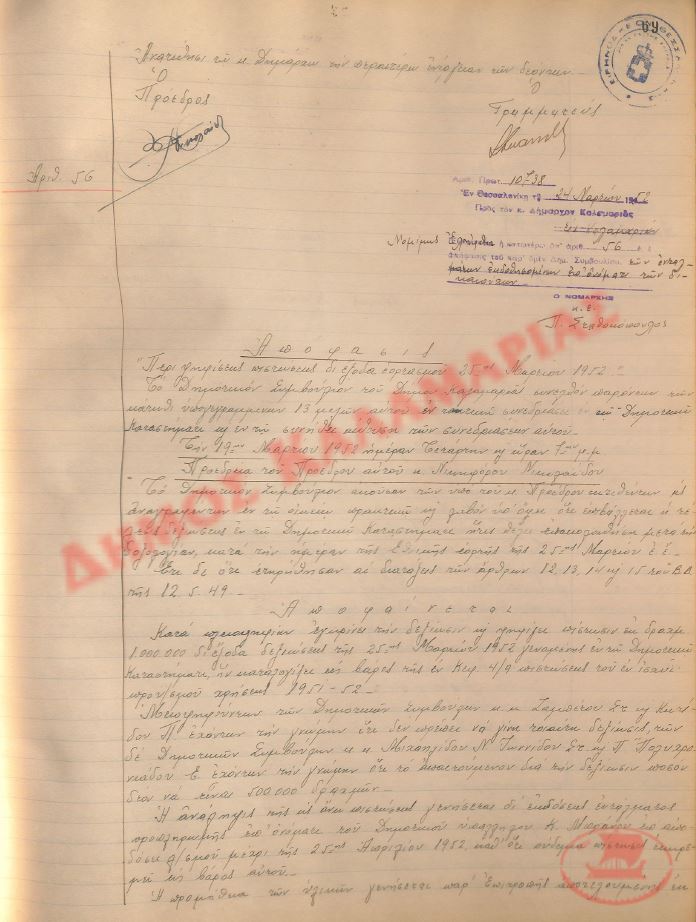 69
Ἀναθέτει τῷ κ. Δημάρχῳ τὴν περαιτέρω ἐνέργειαν τῶν δεόντων.
Ὁ
Πρόεδρος
Ὁ
Γραμματεύς
Ἀριθ. 56
Αριθ. Πρωτ. 10738
Ἐν Θεσσαλονίκῃ τῇ 24 Μαρτίου 1952
Πρὸς τὸν κ. Δήμαρχον Καλαμαριᾶς
ἐν Καλαμαριᾷ
Νομίμως ἐλήφθη ἡ κατωτέρω ὑπ' ἀριθ. 56 ἐ. ἔ.
ἀπόφασις τοῦ παρ' ὑμῖν Δημ. Συμβουλίου
Ο ΝΟΜΑΡΧΗΣ
κ.ἐ.
Ἀπόφασις
"Περὶ ψηφίσεως πιστώσεως δι' ἔξοδα ἑορτασμοῦ 25ης Μαρτίου 1952."
Τὸ Δημοτικὸν Συμβούλιον τοῦ Δήμου Καλαμαριᾶς συνελθὸν παρόντων τῶν
κάτωθι ὑπογεγραμμένων 13 μελῶν αὐτοῦ ἐν τακτικῇ συνεδριάσει ἐν τῷ Δημοτικῷ
Καταστήματι κ ἐν τῇ συνήθει αἰθούσῃ τῶν συνεδριάσεων αὐτοῦ.
Τὴν 19ην Μαρτίου 1952 ἡμέραν Τετάρτην κ ὥραν 7ην μ.μ.
Προεδρίᾳ τοῦ Προέδρου αὐτοῦ κ. Νικηφόρου Νικολαΐδου
Τὸ Δημοτικὸν Συμβούλιον ἀκοῦσαν τῶν ὑπὸ τοῦ κ. Προέδρου ἐκτεθέντων ὡς
ἀναγράφονται ἐν τῷ οἰκείῳ πρακτικῷ κ λαβὸν ὑπ' ὄψει ὅτι ἐπιβάλλεται ἡ τέ-
λεσις δεξιώσεως ἐν τῷ Δημοτικῷ Καταστήματι ἥτις θέλει ἐπακολουθήσῃ μετὰ τὴν
δοξολογίαν, κατὰ τὴν ἡμέραν τῆς Ἐθνικῆς ἑορτῆς τῆς 25ης Μαρτίου ἐ.ἔ.
Ἔτι δὲ ὅτι ἐτηρήθησαν αἱ διατάξεις τῶν ἄρθρων 12, 13, 14 κ 15 τοῦ Β.Δ.
τῆς 12.5.49.
Ἀποφαίνεται
Κατὰ πλειοψηφίαν ἐγκρίνει τὴν δεξίωσιν κ ψηφίζει πίστωσιν ἐκ δραχμ.
1.000.000 δι' ἔξοδα δεξιώσεως τῆς 25ης Μαρτίου 1952 γενομένης ἐν τῷ Δημοτικῷ
Καταστήματι, ἣν καταλογίζει εἰς βάρος τῆς ἐν Κεφ. 4/9 πιστώσεως τοῦ ἐν ἰσχύϊ
προϋπ/σμοῦ χρήσεως 1951-52.
Μειοψηφούντων τῶν Δημοτικῶν Συμβούλων κ.κ. Ζαμπέτου Στ. κ
Π. ἐχόντων τὴν γνώμην ὅτι δὲν πρέπει νὰ γίνῃ τοιαύτη δεξίωσις τῶν
δὲ Δημοτικῶν Συμβούλων κ.κ. Μιχαηλίδου Ν. Ἰωννίδου Στ. κ Π. Πολυχρο-
νιάδου ἐχόντων τὴν γνώμην ὅτι τὸ ἀπαιτούμενον διὰ τὴν δεξίωσιν ποσὸν
δέον νὰ εἶναι 500.000 δραχμῶν.
Ἡ ἀνάληψις τῆς ὡς ἄνω πιστώσεως γενήσεται δι' ἐκδόσεως ἐντάλματος
προπληρωμῆς ἐπ' ὀνόματι τοῦ Δημοτικοῦ ὑπαλλήλου Κ. ἐπὶ ἀπο-
δόσει λ/σμοῦ μέχρι τῆς 25ης Ἀπριλίου 1952, καθ' ὅτι οὐδεμία πίστωσις ἐκκρε-
μεῖ εἰς βάρος αὐτοῦ.
Ἡ προμήθεια τῶν ὑλικῶν γενήσεται παρ' Ἐπιτροπῆς ἀποτελουμένης ἐκ
ΔΗΜΟΣ ΚΑΛΑΜΑΡΙΑΣ